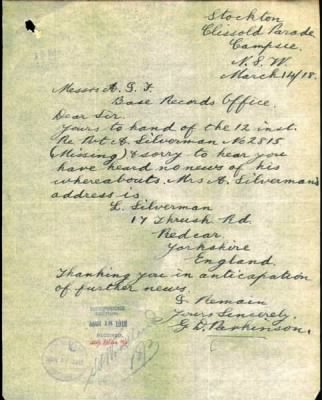 Stockton
Clissold Parade
Campsie.
N.S.W.
March 14/18.
Messrs A. I. F.
Base Records Office.
Dear Sir.
Yours to hand of the 12 inst.
Re Pvt A. Silverman No 2815
(Missing) & sorry to hear you
have heard no news of his
whereabouts. Mrs A. Silverman's
address is
L. Silverman
17 Thrush Rd
Redcar.
Yorkshire
England.
Thanking you in anticapation
of further news.
I Remain
Yours Sincerely.
G D. Parkinson.
MAR 1918